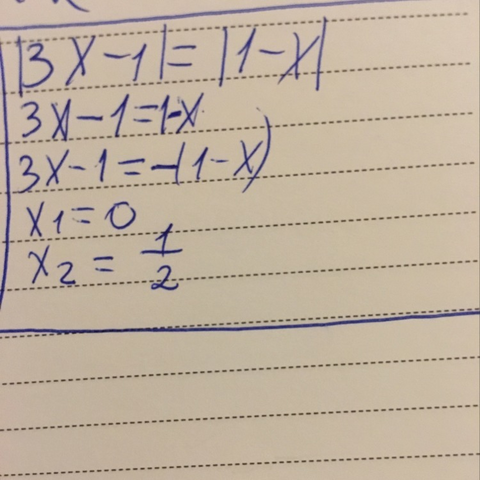 |3x-1|=|1-x|
3x-1=1-x
3x-1=-(1-x)
x1=0
x2=1/2